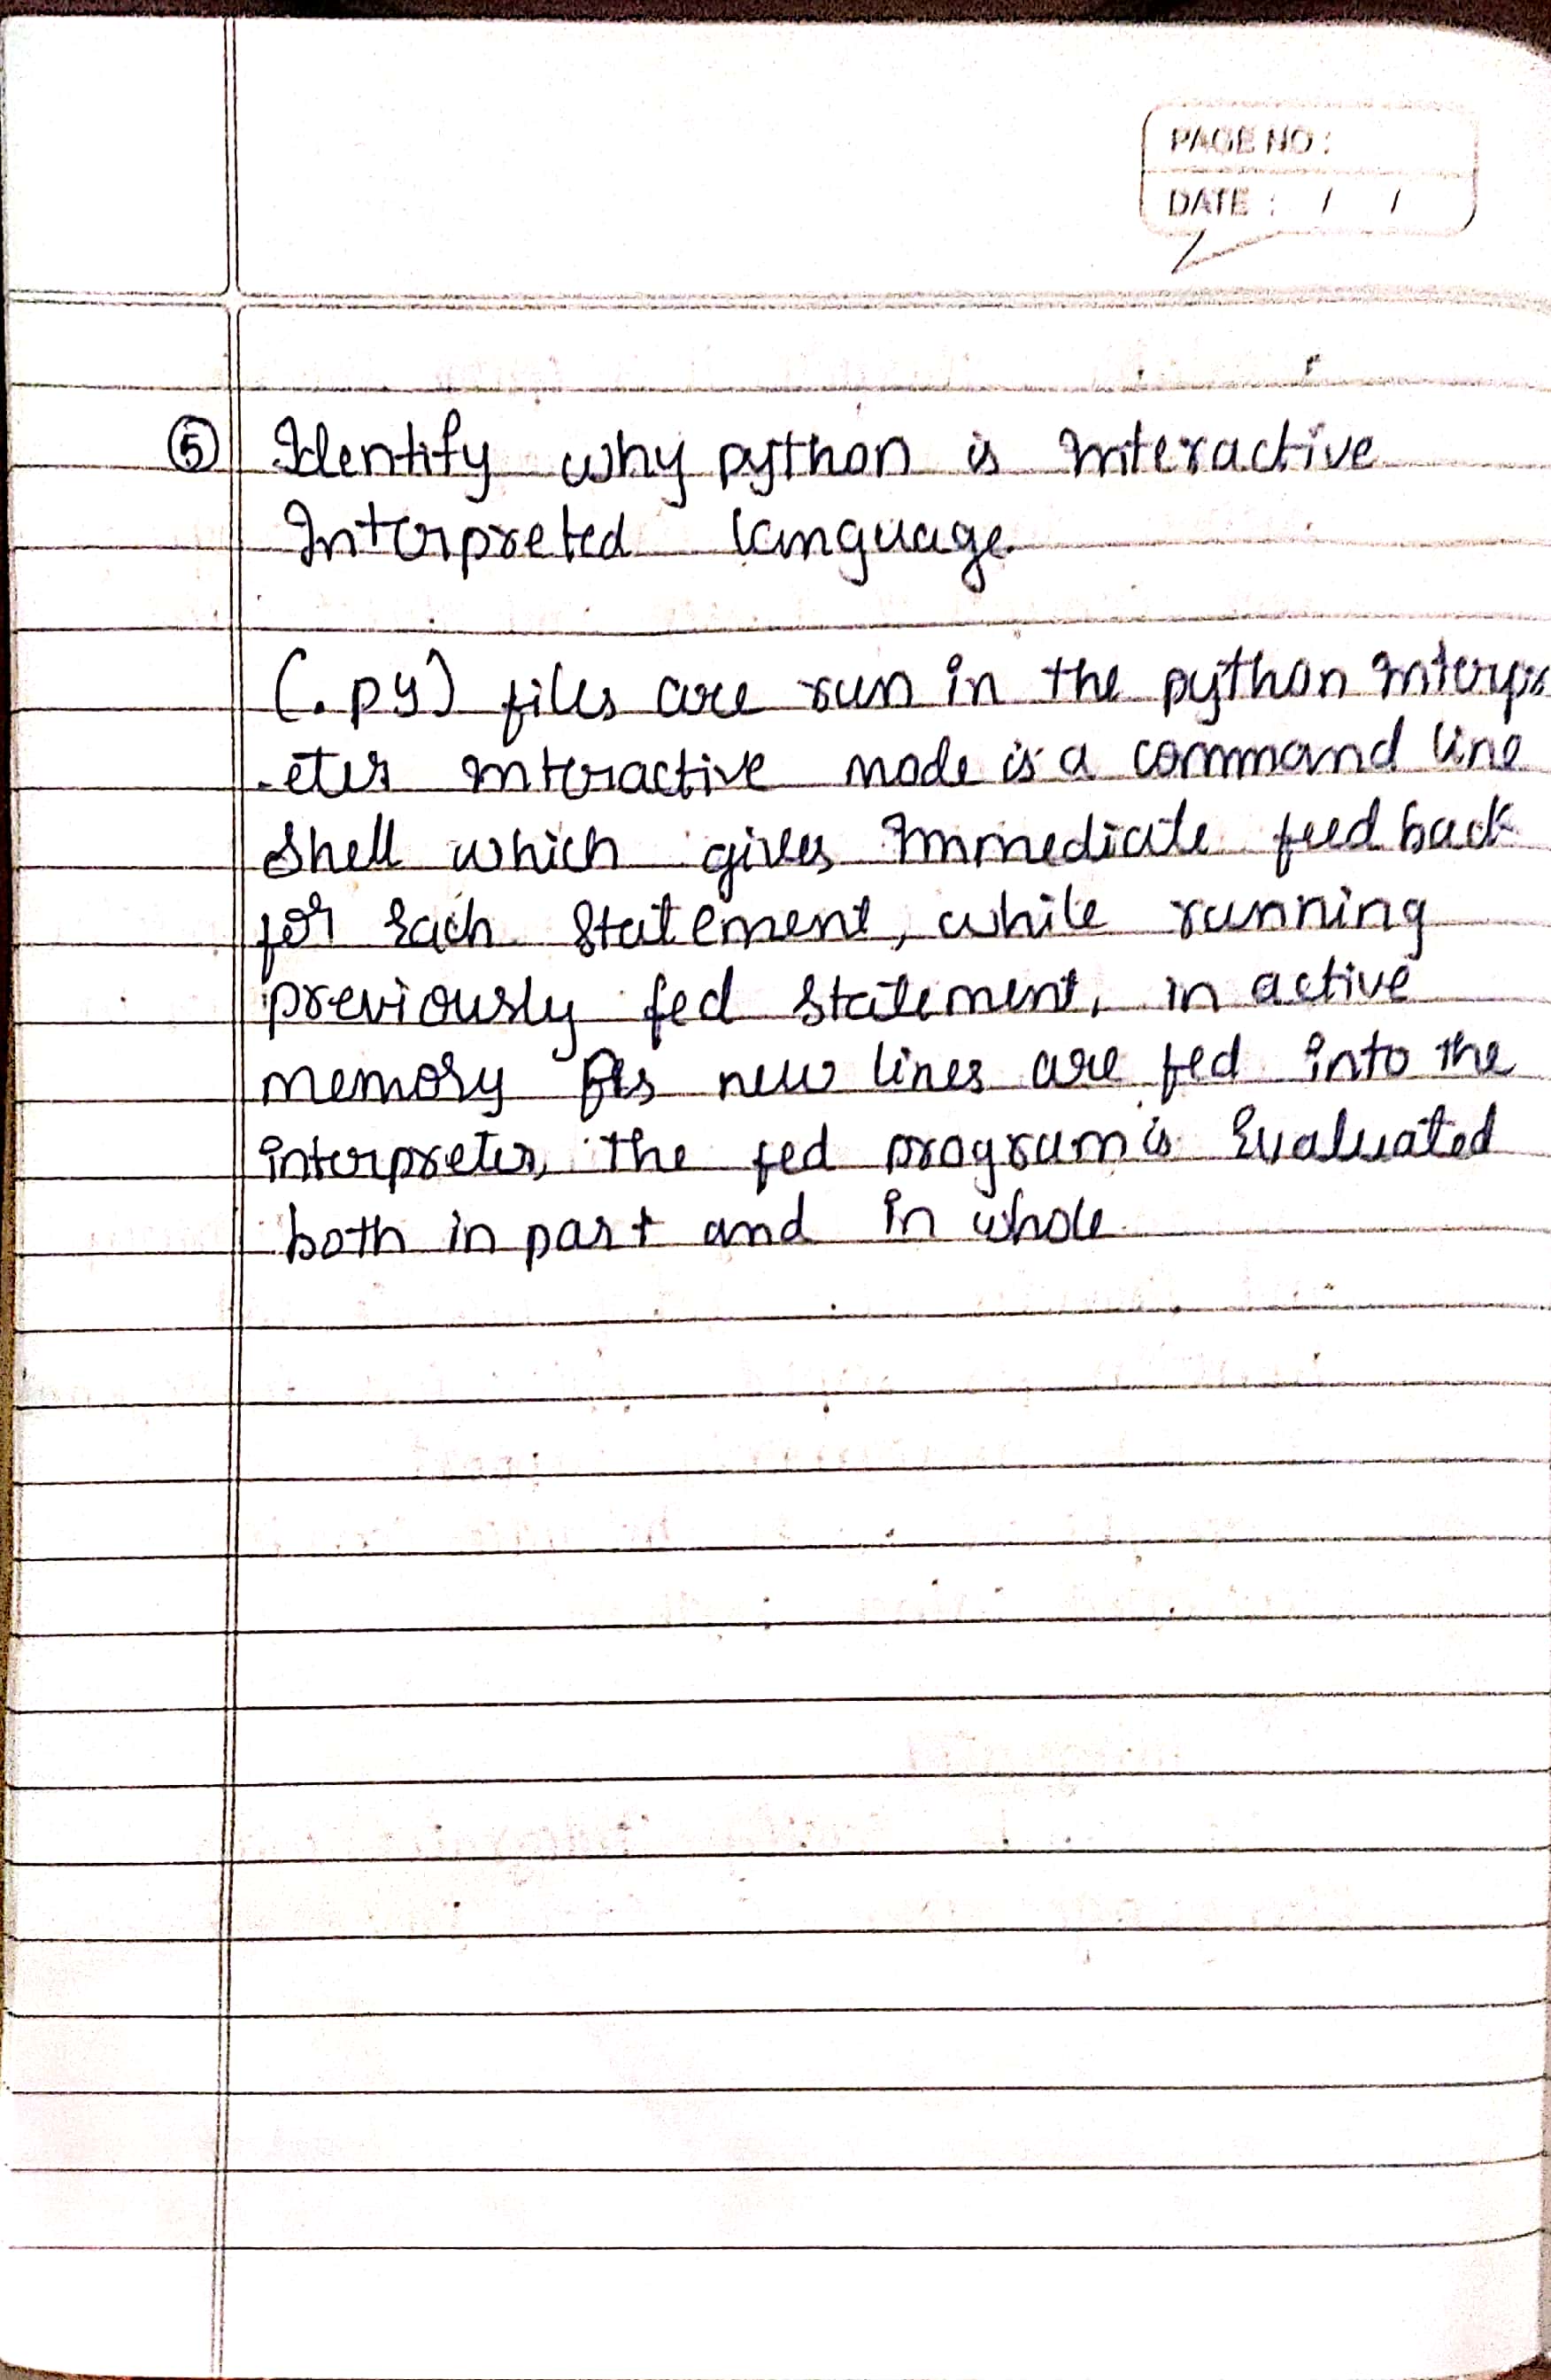 PAGE NO :
DATE : / /
⑤ Identify why python is interactive
Interpreted language.
(.py) files are run in the python interpr
-eter interactive mode is a command line
shell which gives Immediate feed back
for each statement, while running
previously fed statement, in active
memory As new lines are fed into the
interpreter, the fed program is Evaluated
both in part and in whole